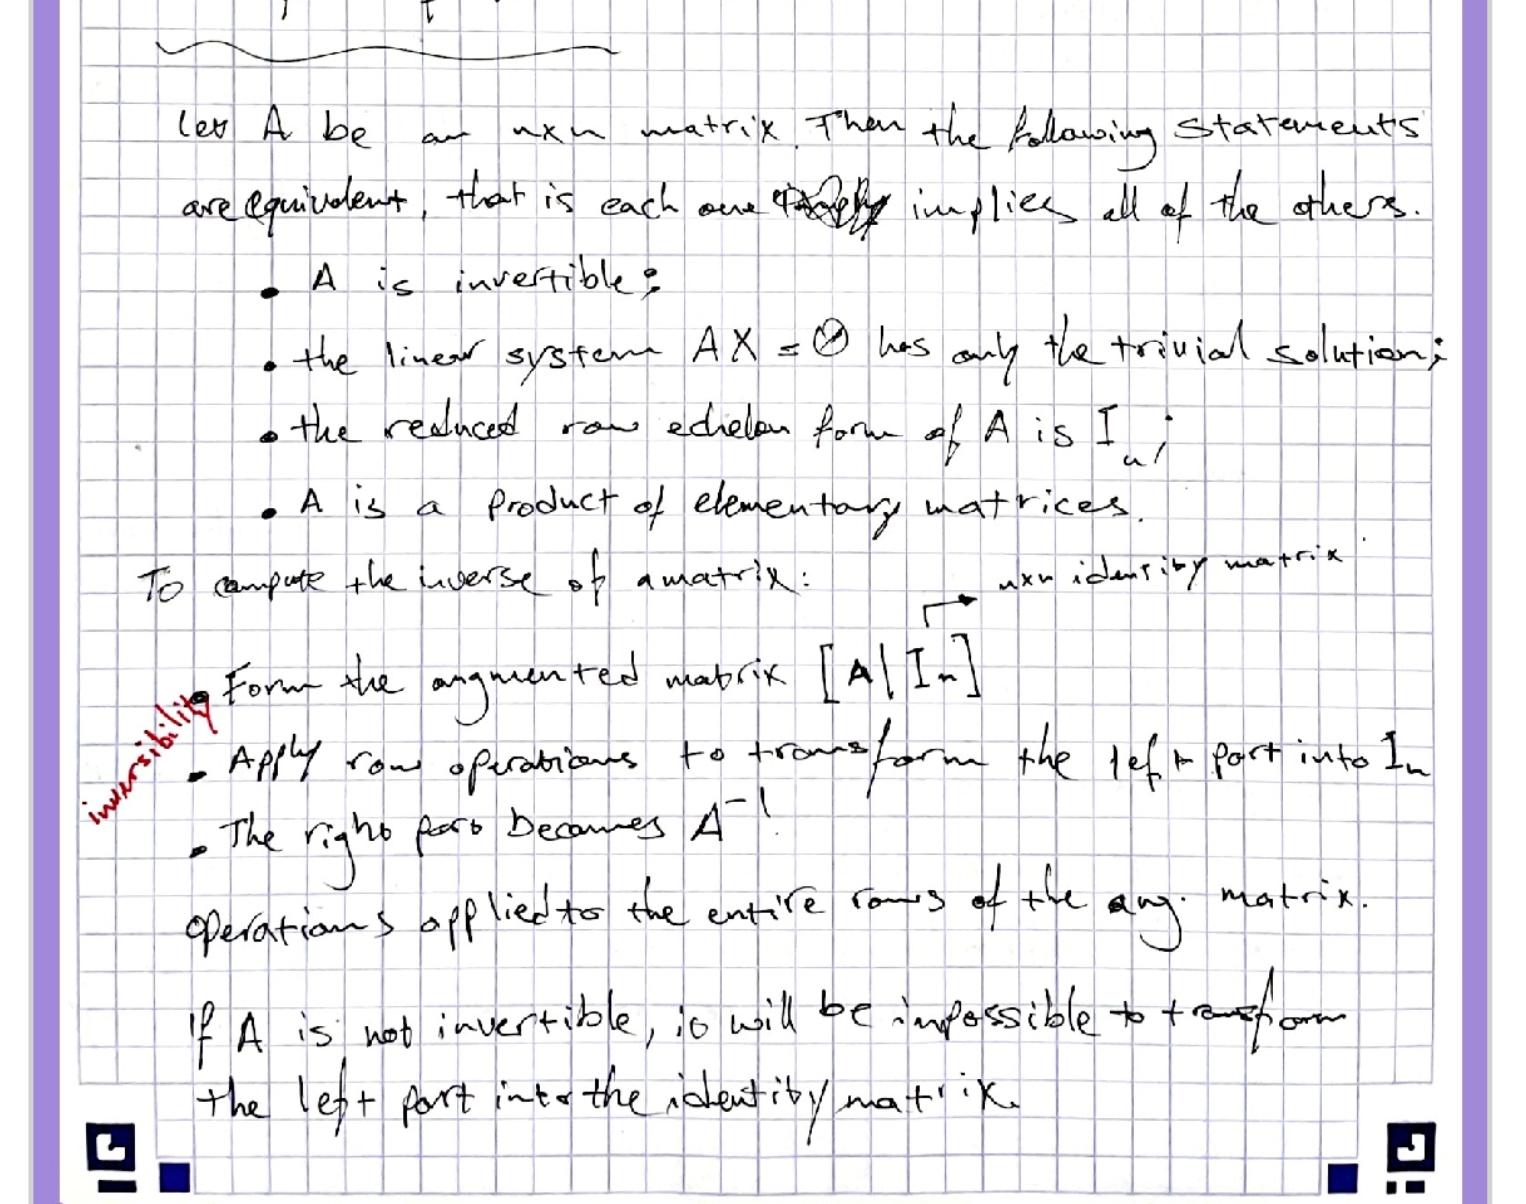 Let A be an nxn matrix. Then the following statements
are equivalent, that is each one implies all of the others.
• A is invertible;
• the linear system AX = 0 has only the trivial solution;
• the reduced row echelon form of A is Iₙ;
• A is a product of elementary matrices.
To compute the inverse of a matrix:
nxn identity matrix
• Form the augmented matrix [A | Iₙ]
inversibility
• Apply row operations to transform the left part into Iₙ
• The right part becomes A⁻¹.
operations applied to the entire rows of the aug. matrix.
If A is not invertible, it will be impossible to transform
the left part into the identity matrix.